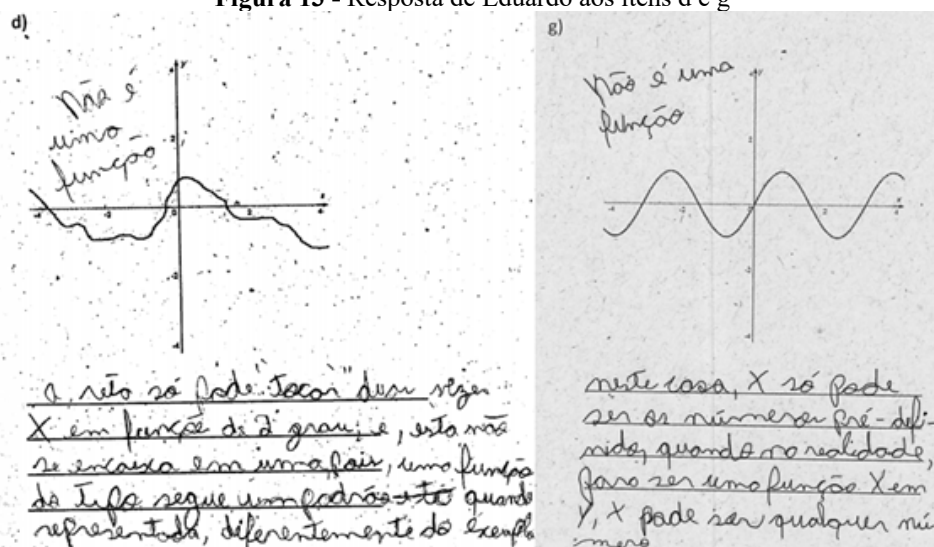 Figura 15 - Resposta de Eduardo aos itens d e g
d)
Não é
uma
função
y
-4
-2
0
2
4
2
-2
-4
a reta só pode "tocar" duas vezes
X em função de 2º grau, e, esta não
se encaixa em uma pois, uma função
do tipo segue um padrão quando
representada, diferentemente do exemplo
g)
Não é uma
função
y
-4
-2
0
2
4
2
-2
-4
neste caso, X só pode
ser os números pré-defi-
nidos, quando na realidade,
para ser uma função X em
Y, X pode ser qualquer nú-
mero